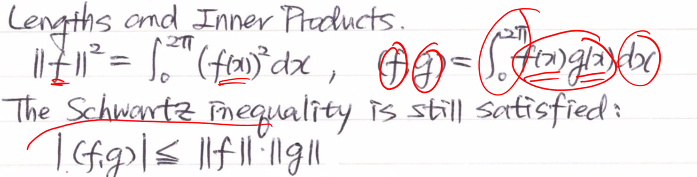 Lengths and Inner Products.
‖f‖² = ∫₀^2π (f(x))² dx , (f,g) = ∫₀^2π f(x)g(x)dx
The Schwartz inequality is still satisfied:
|(f,g)| ≦ ‖f‖·‖g‖